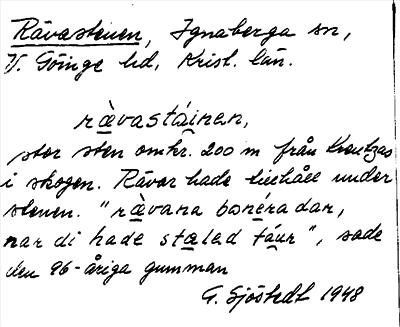 Rävastenen, Ignaberga sn,
V. Göinge hd, Krist. län.
rävastáinen,
stor sten omkr. 200 m från Kreutzas
i skogen. Rävar hade tillhåll under
stenen. "rävana bonéradar,
nar di hade stæled táur", sade
den 96-åriga gumman
G. Sjöstedt 1948